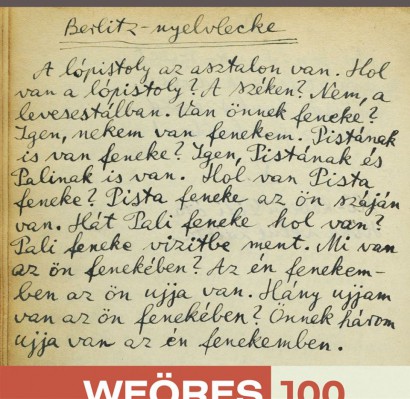 Berlitz-nyelvlecke
A lópistoly az asztalon van. Hol
van a lópistoly? A széken? Nem, a
levesestálban. Van önnek feneke?
Igen, nekem van fenekem. Pistának
is van feneke? Igen, Pistának és
Palinak is van. Hol van Pista
feneke? Pista feneke az ön száján
van. Hát Pali feneke hol van?
Pali feneke vizitbe ment. Mi van
az ön fenekében? Az én fenekem-
ben az ön ujja van. Hány ujjam
van az ön fenekében? Önnek három
ujja van az én fenekemben.
WEÖRES 100